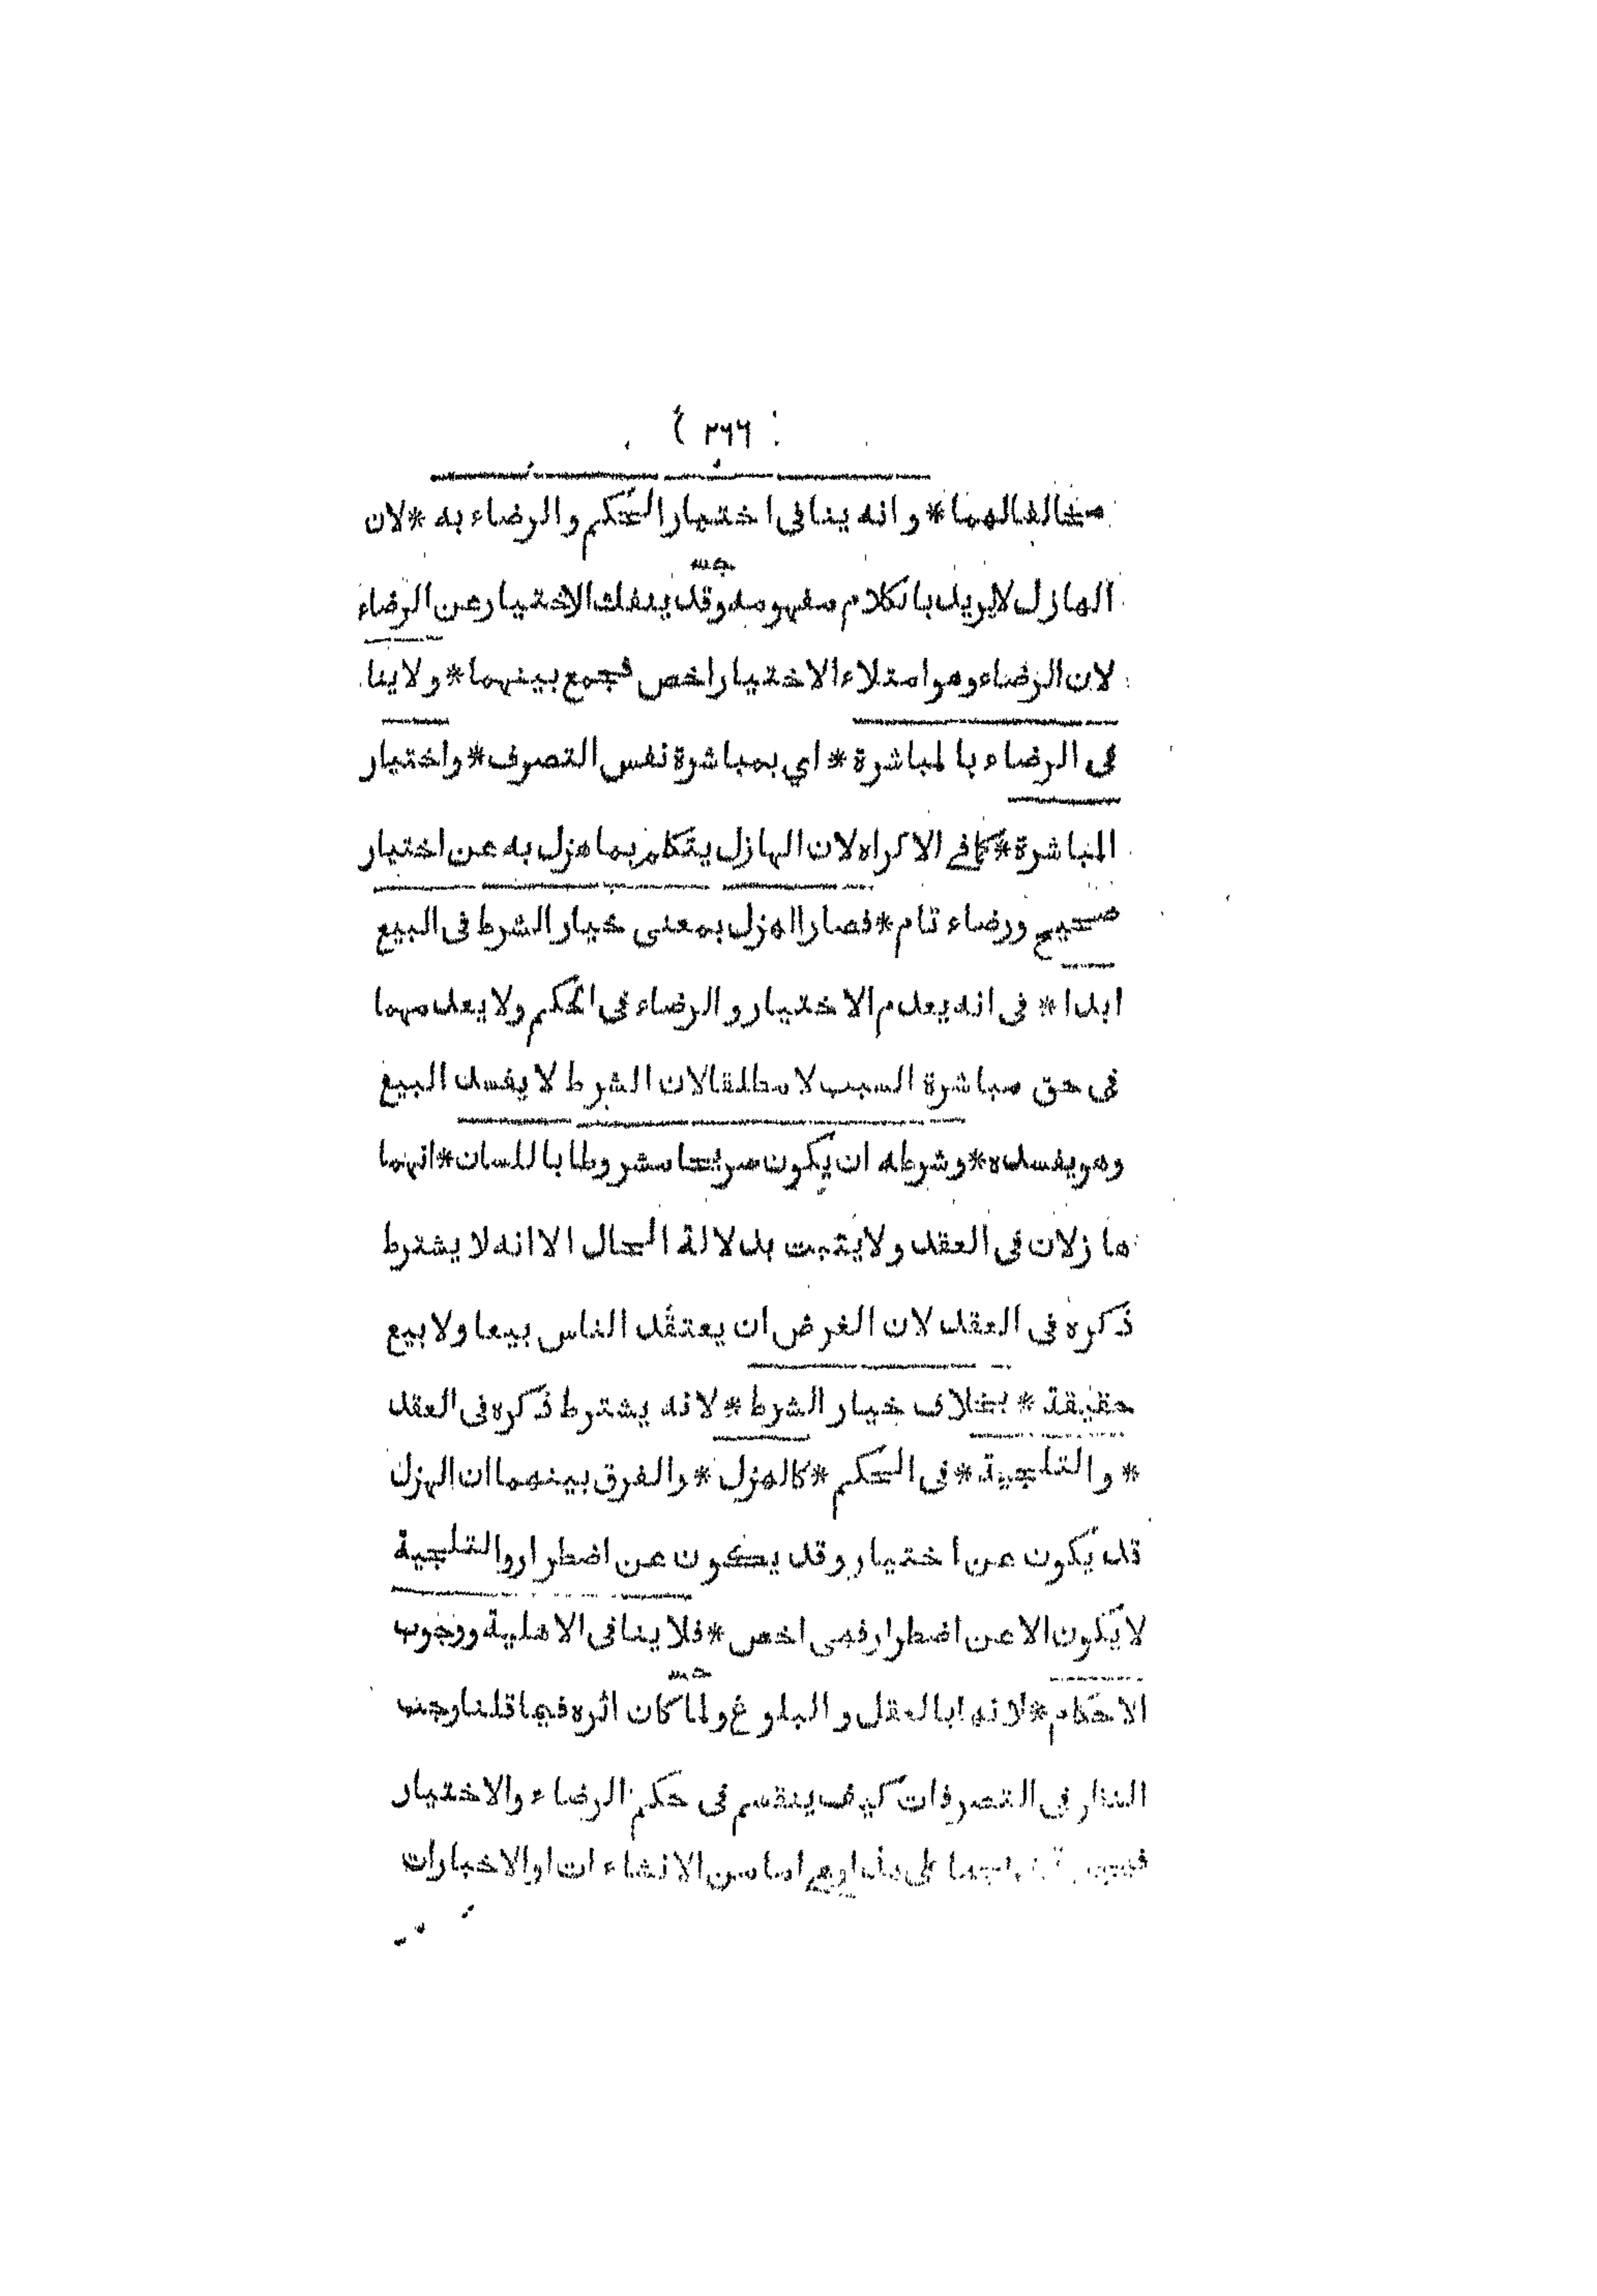 ( ٢٦٦ )
مخالفالهما * وانه ينافى اختيار الحكم والرضاء به * لان
الهازل لايريد بالكلام مفهومه وقد ينفك الاختيار عن الرضاء
لان الرضاء وهو امتلاء الاختيار اخص فجمع بينهما * ولا ينا
فى الرضاء بالمباشرة * اي بمباشرة نفس التصرف * واختيار
المباشرة * كمافے الاكراه لان الهازل يتكلم بما هزل به عن اختيار
صحيح ورضاء تام * فصار الهزل بمعنى خيار الشرط فى البيع
ابدا * فى انه يعدم الاختيار والرضاء فى الحكم ولا يعدمهما
فى حق مباشرة السبب لا مطلقا لان الشرط لا يفسد البيع
وهو يفسده * وشرطه ان يكون صريحا مشروطا باللسان * انهما
هازلان فى العقد ولا يثبت بدلالة الحال الا انه لا يشترط
ذكره فى العقد لان الغرض ان يعتقد الناس بيعا ولا بيع
حقيقة * بخلاف خيار الشرط * لانه يشترط ذكره فى العقد
* والتلجية * فى الحكم * كالهزل * والفرق بينهما ان الهزل
قد يكون عن اختيار وقد يكون عن اضطرار والتلجية
لا يكون الا عن اضطرار فهى اخص * فلا ينافى الاهلية ووجوب
الاحكام * لانها بالعقل والبلوغ ولما كان اثره فيما قلنا وجب
النظر فى التصرفات كيف ينقسم فى حكم الرضاء والاختيار
على هذا وهي اما من الانشاءات او الاخبارات